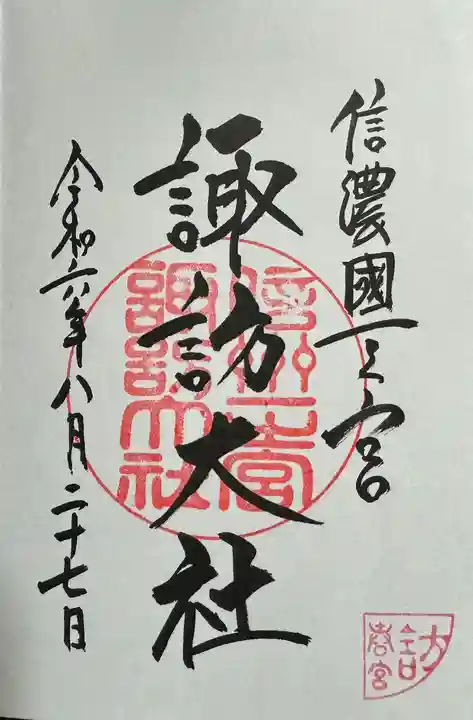 信濃國一之宮
諏訪大社
信州一之宮
諏訪大社
令和六年八月二十七日
春宮